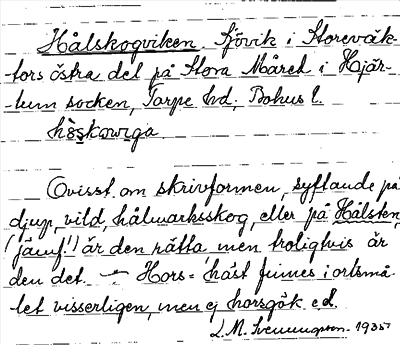 Hålskogviken. Sjövik i Storeväk-
-fors östra del på Stora Måred i Hjär-
-tum socken, Torpe hd; Bohus l.
hɔ̀skowiga
Ovisst om skrivformen, syftande på
djup, vild, hålmarksskog, eller på Hålsten
(jämf!) är den rätta, men troligtvis är
den det. — Hors = häst finnes i ortsmå
let visserligen, men ej horsgök e.d.
L.M. Svenungsson. 1935